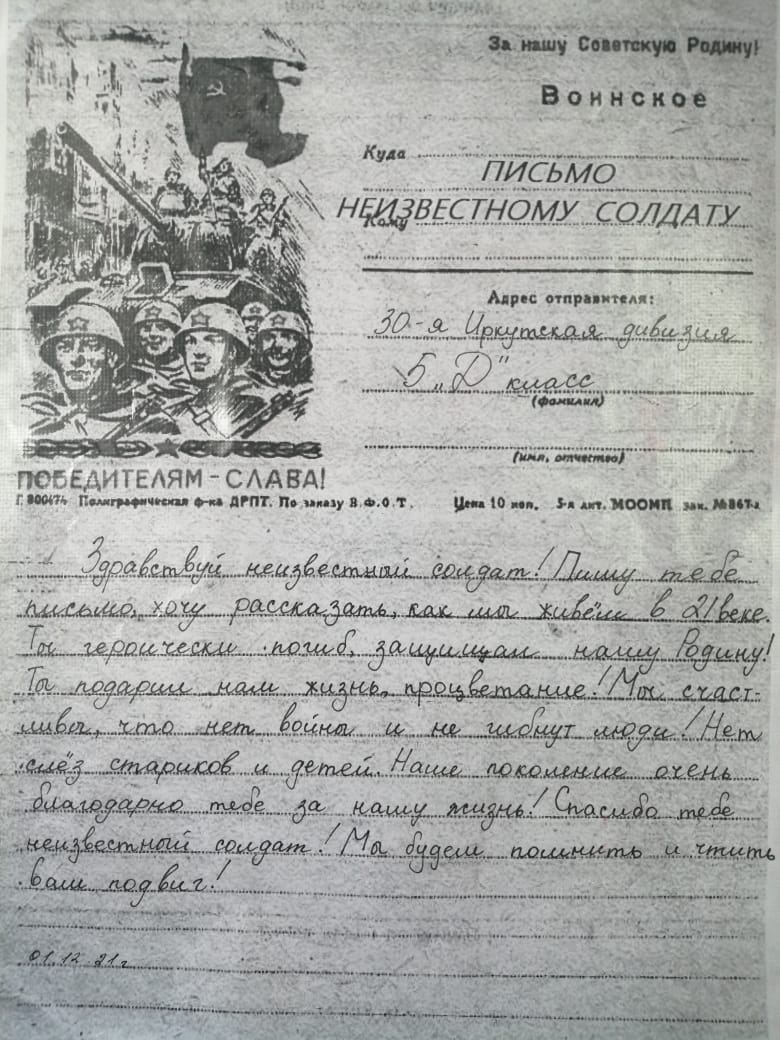 За нашу Советскую Родину!
Воинское
Куда
ПИСЬМО
НЕИЗВЕСТНОМУ СОЛДАТУ
Кому
Адрес отправителя:
30-я Иркутская дивизия
5 „Д" класс
(фамилия)
(имя, отчество)
ПОБЕДИТЕЛЯМ - СЛАВА!
Г. 800474 Полиграфическая ф-ка ДРПТ. По заказу В.Ф.О.Т. Цена 10 коп. 5-я лит. МООМП зак. №867-а
Здравствуй неизвестный солдат! Пишу тебе
письмо, хочу рассказать, как мы живём в 21 веке.
Ты героически погиб, защищал нашу Родину!
Ты подарил нам жизнь, процветание! Мы счаст-
ливы, что нет войны и не гибнут люди! Нет
слёз стариков и детей. Наше поколение очень
благодарно тебе за нашу жизнь! Спасибо тебе
неизвестный солдат! Мы будем помнить и чтить
ваш подвиг!
01.12.21 г